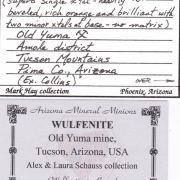 (Superb single xtal - nearly
beveled, rich orange and brilliant with
two minor xtals at base - no matrix)
Old Yuma ⚒
Amole district
Tucson Mountains
Pima Co., Arizona
(Ex. Collins) OVER →
Mark Hay collection Phoenix, Arizona
Arizona Mineral Minions
WULFENITE
Old Yuma mine,
Tucson, Arizona, USA
Alex & Laura Schauss collection